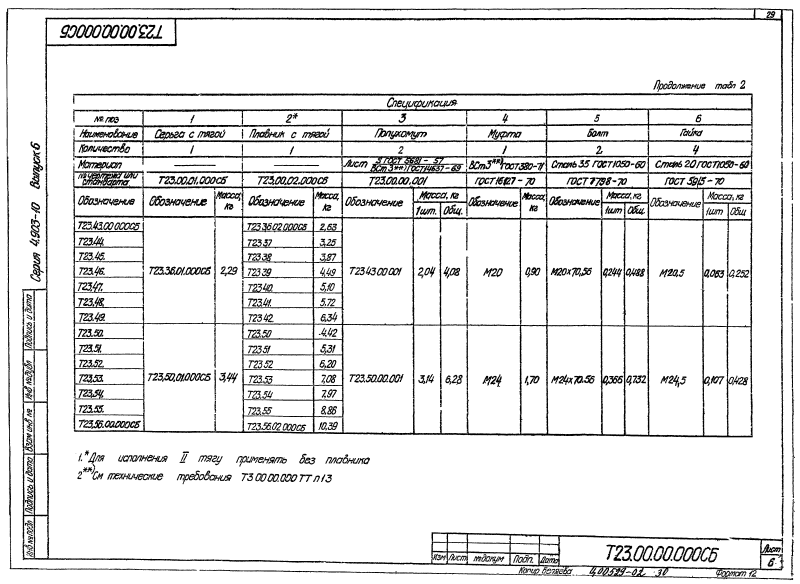 29
Т23.00.00.000СБ
Серия 4.903-10 Выпуск 6
Продолжение табл 2
Спецификация
№ поз 1 2* 3 4 5 6
Наименование Серьга с тягой Плавник с тягой Полухомут Муфта Болт Гайка
Количество 1 1 2 1 2 4
Материал — — Лист 3 ГОСТ 5681-57 / ВСт3**) ГОСТ 14637-69 ВСт3**) ГОСТ 380-71 Сталь 35 ГОСТ 1050-60 Сталь 20 ГОСТ 1050-60
№ чертежа или стандарта Т23.00.01.000СБ Т23.00.02.000СБ Т23.00.00.001 ГОСТ 16127-70 ГОСТ 7798-70 ГОСТ 5915-70
Обозначение Обозначение Масса, кг Обозначение Масса, кг Обозначение Масса, кг Обозначение Масса, кг Обозначение Масса, кг Обозначение Масса, кг
1шт. Общ. 1шт Общ. 1шт Общ
Т23.43.00.000СБ Т23.36.02.000СБ 2,63
Т23.44. Т23.37 3,25
Т23.45. Т23.38 3,87
Т23.46. Т23.36.01.000СБ 2,29 Т23.39 4,49 Т23.43.00.001 2,04 4,08 М20 0,90 М20х70.56 0,244 0,488 М20.5 0,063 0,252
Т23.47. Т23.40. 5,10
Т23.48. Т23.41. 5.72
Т23.49. Т23.42 6,34
Т23.50. Т23.50 4,42
Т23.51. Т23.51 5,31
Т23.52. Т23.52 6,20
Т23.53. Т23.50.01.000СБ 3,44 Т23.53 7,08 Т23.50.00.001 3,14 6,28 М24 1,70 М24х70.56 0,366 0,732 М24.5 0,107 0,428
Т23.54. Т23.54 7,97
Т23.55. Т23.55 8,86
Т23.56.00.000СБ Т23.56.02.000СБ 10,39
1.* Для исполнения II тягу применять без плавника
2**) См технические требования Т3.00.00.000 ТТ п 13
Инв № подл Подпись и дата Взам инв № Инв № дубл Подпись и дата
Изм Лист № докум Подп. Дата
Т23.00.00.000СБ
Лист
6
Копир Беляева 400599-02 30 Формат 12